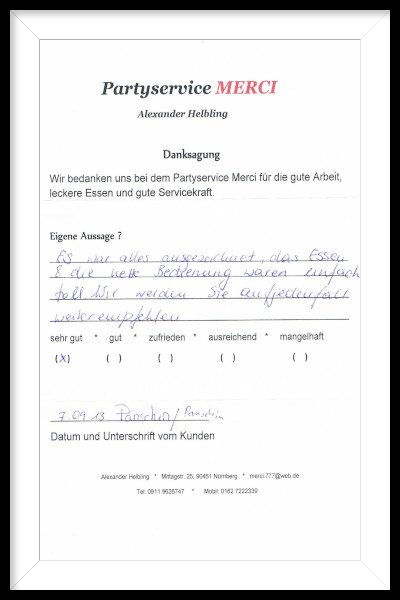 Partyservice MERCI
Alexander Helbling
Danksagung
Wir bedanken uns bei dem Partyservice Merci für die gute Arbeit,
leckere Essen und gute Servicekraft.
Eigene Aussage ?
ES war alles ausgezeichnet, das Essen
& die nette Bedienung waren einfach
toll. Wir werden Sie aufjedenfall
weiterempfehlen
sehr gut * gut * zufrieden * ausreichend * mangelhaft
(X) ( ) ( ) ( ) ( )
7.09.13
Datum und Unterschrift vom Kunden
Alexander Helbling * Mittagstr. 25, 90451 Nürnberg * merci.777@web.de
Tel: 0911 9626747 * Mobil: 0162 7222339